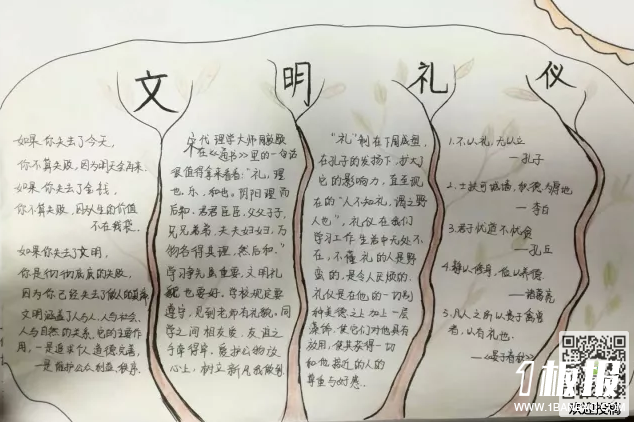 文明礼仪
如果你失去了今天，
你不算失败，因为明天会再来。
如果你失去了金钱，
你不算失败，因为人生的价值
不在钱袋。
如果你失去了文明，
你是彻彻底底的失败，
因为你已经失去了做人的真谛
文明涵盖了人与人，人与社会，
人与自然的关系，它的主要作
用，一是追求个人道德完善，
一是维护公众利益、秩序。
宋代理学大师周敦颐
不在《通书》里的一句话
很值得拿来看看："礼，理
也，乐，和也，阴阳理而
后和，君君臣臣，父父子子，
兄兄弟弟，夫夫妇妇，万
物各得其理，然后和。"
学习争先虽重要，文明礼
也要好。学校规定要
遵守，见到老师有礼貌，同
学之间相友爱，友谊之
手牵得牢，爱护公物放
心上，树立新风我做到
"礼"制在下周成型，
在孔子的发扬下，扩大了
它的影响力，直至现
在的"人不知礼，谓之野
人也"，礼仪在我们
学习工作生活中无处不
在，不懂礼的人是野
蛮的，是令人厌烦的，
礼仪是在他的一切别
种美德之上加上一层
藻饰，使它们对他具有
效用，使其获得一切
和他接近的人的
尊重与好感。
1.不以礼，无以立
—孔子
2.土扶可成墙，积德为厚地
—李白
3.君子忧道不忧贫
—孔丘
4.静以修身，俭以养德
—诸葛亮
5.凡人之所以贵于禽兽
者，以有礼也.
—《晏子春秋》
1板报
WWW.1BANBAO.COM
欢迎投稿